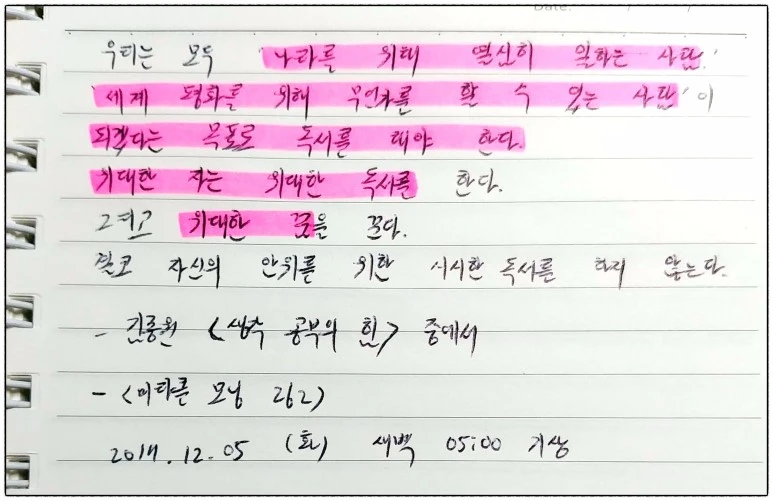 Date:
우리는 모두 '나라를 위해 열심히 일하는 사람'
'세계 평화를 위해 무언가를 할 수 있는 사람'이
되겠다는 목표로 독서를 해야 한다.
위대한 자는 위대한 독서를 한다.
그리고 위대한 꿈을 꾼다.
결코 자신의 안위를 위한 시시한 독서를 하지 않는다.
- 김종원 <생각 공부의 힘> 중에서
- <미라클 모닝 262>
2017.12.05 (화) 새벽 05:00 기상